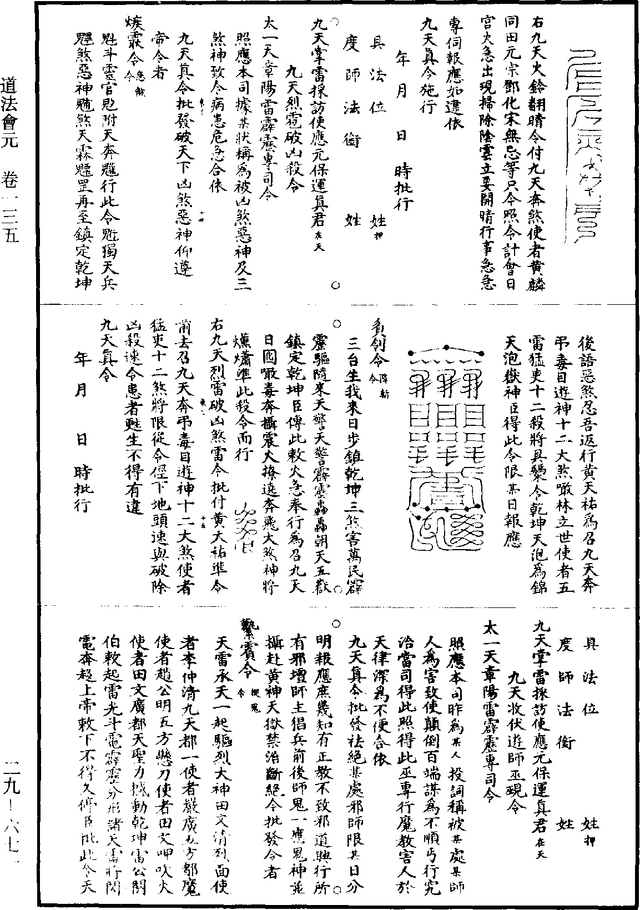 右九天火鈴翻晴令付九天奔煞使者黃麟
同田元宗鄧化宋無忌等只今照令計會日
宮火急出現掃除陰雲立要開晴行事急急
專伺報應如違依
九天真令施行
年 月 日 時批行
具法位 姓 押
度師法銜 姓
九天掌雷採訪使應元保運真君 在天
九天烈雷破凶殺令
太一天章陽雷霹靂專司令
照應本司據某狀稱為被凶煞惡神及三
煞神致令病患危急合依
九天真令批發破天下凶煞惡神仰遵
帝令者
魁斗靈官
天兵
罡再至鎮定乾坤
後語惡煞忍吾返行黃天祐為召九天奔
弔毒目遊神十二大煞噉林立世使者五
雷猛吏十二殺將具
令乾坤天泡為錦
天泡嶽神臣得此令限某日報應
三台生我來日步鎮乾坤三煞害萬民霹
靂驅隨來天警天警霹靂轟轟朝天五歡
鎮定乾坤臣傳此敕火急奉行為召九天
日圓噉毒奔攝震大
奔飛大煞神將
準此殺令而行
右九天烈雷破凶煞雷令批付黃天祐準令
前去召九天奔弔毒目遊神十二大煞使者
猛吏十二煞將限從令徑下地頭速與破除
凶殺速令患者甦生不得有違
九天真令
年 月 日 時批行
具法位 姓 押
度師法銜 姓
九天掌雷採訪使應元保運真君 在天
九天收伏遊師巫覡令
太一天章陽雷霹靂專司令
照應本司昨為某人投詞稱被某處某師
人為害致使顛倒百端謀為不順丐行究
治當司得此照得此巫專行魔教害人於
天律深為不便合依
九天真令批發袪絕某處邪師限某日分
明報應庶幾知有正教不致邪道興行所
有邪壇師主倡兵前後師鬼一應鬼神並
攝赴黃神天獄禁治斷絕令批發令者
天雷承天一起驅烈大神田文清烈面使
者李仲清九天都一使者嚴廣五方都魔
使者趙公明五方懸刀使者田文呷吹火
使者田文廣都天聖力撼動乾坤雷公閻
伯敕起雷光斗電霹靂分形諸天雷將閃
電奔趍上帝敕下不得久停臣批此令天
道法會元 卷一三五
二九-六七一